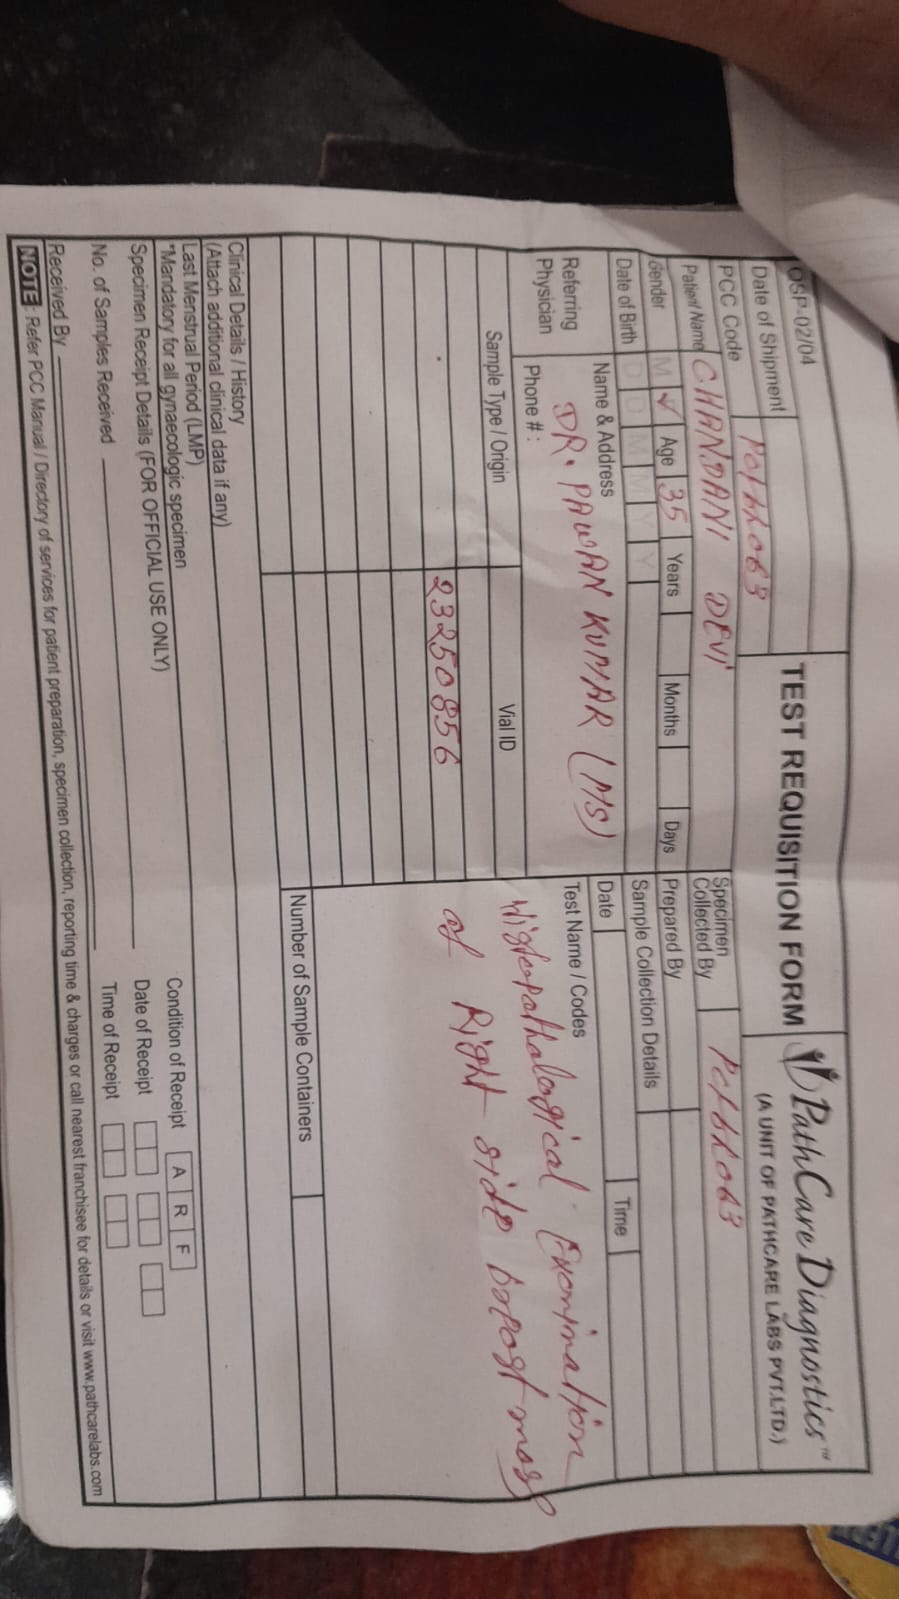 OSP-02/04
TEST REQUISITION FORM
PathCare Diagnostics™
(A UNIT OF PATHCARE LABS PVT.LTD.)
Date of Shipment
PCC Code
Specimen
Collected By
Patient Name CHANDANI DEVI
Prepared By
Gender M ✓ Age 35 Years Months Days
Sample Collection Details
Date of Birth D D M M Y Y
Date Time
Referring
Physician
Name & Address
DR. PAWAN KUMAR (MS)
Phone # :
Test Name / Codes
Histopathological Examination
of Right side breast mass
Sample Type / Origin Vial ID
23250856
Number of Sample Containers
Clinical Details / History
(Attach additional clinical data if any)
Last Menstrual Period (LMP)
*Mandatory for all gynaecologic specimen
Specimen Receipt Details (FOR OFFICIAL USE ONLY)
Condition of Receipt A R F
No. of Samples Received
Date of Receipt
Received By
Time of Receipt
NOTE: Refer PCC Manual / Directory of services for patient preparation, specimen collection, reporting time & charges or call nearest franchisee for details or visit www.pathcarelabs.com